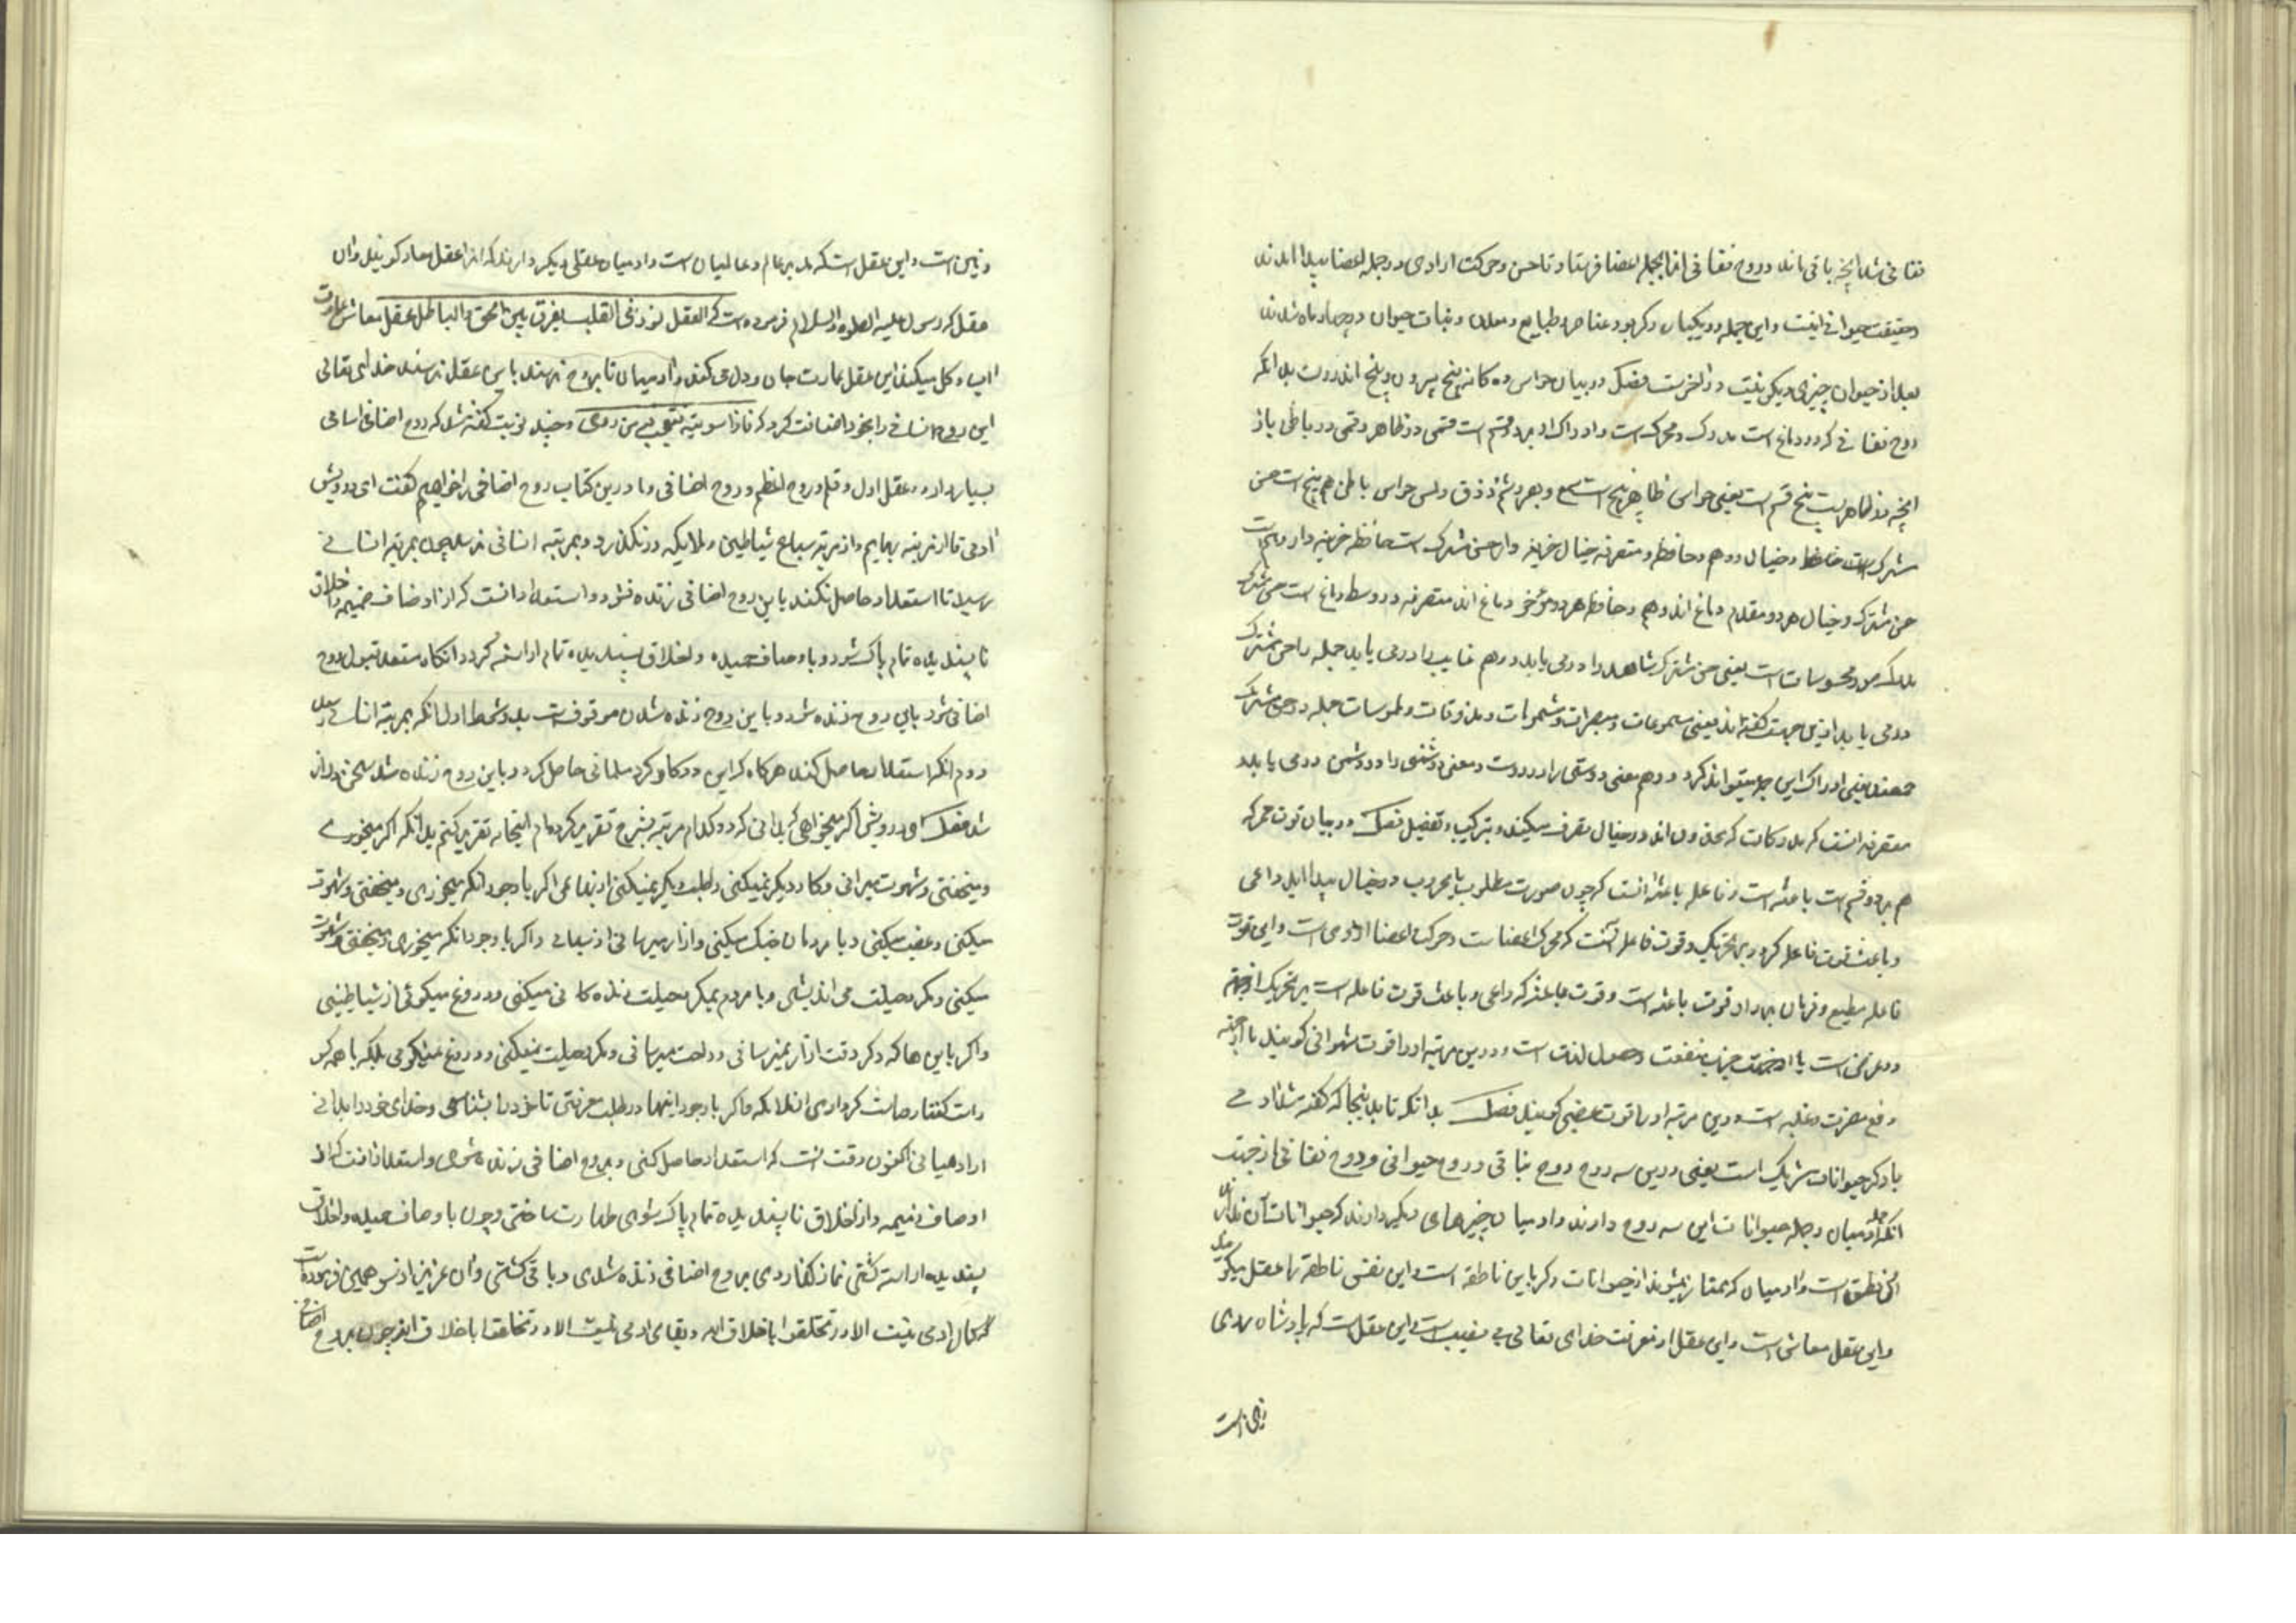 نفسانی شد آنچه باقی ماند روح نفسانی انرا بجمله اعضا فرستاد تا حس و حرکت ارادی در جمله اعضا پیدا امدند
و حقیقت حیوانی اینست و این جمله در یکماه دکر بود عناصر و طبایع و معدن و نبات و حیوان در چهار ماه شدند
بعد از حیوان چیزی دیکر نیست فصل در بیان حواس ده کانه پنج بیرون و پنج اندرون بدانکه
روح نفسانی که در دماغ است مدرک و محرک است و ادراک او بر دو قسم است قسمی در ظاهر و قسمی در باطن باز
آنچه در ظاهر است پنج قسم است یعنی حواس ظاهر پنج است سمع و بصر و شم و ذوق و لمس حواس باطن هم پنج است حس
مشترک است و خیال و وهم و حافظه و متصرفه خیال خزینه دار حس مشترک است حافظه خزینه دار وهم است
حس مشترک و خیال هر دو مقدم دماغ اند وهم و حافظه هر دو مؤخر دماغ اند متصرفه در وسط دماغ است حس مشترک
مدرک صور محسوسات است یعنی حس مشترک شاهد را در می یابد و وهم غایب را در می یابد جمله را حس مشترک
در می یابد ازین جهت گفته اند یعنی مسموعات و مبصرات و مشمومات و مذوقات و ملموسات جمله در حس مشترک
جمعند یعنی ادراک این جمله میتواند کرد و وهم معنی دوستی را در دوست و معنی دشمنی را در دشمن در می یابد
متصرفه انست که مدرکات که مخزون اند در خیال تصرف میکند بترکیب و تفصیل فصل در بیان قوت محرکه
هم بر دو قسم است باعثه است و فاعله باعثه انست که چون صورت مطلوب یا مهروب در خیال پیدا اید داعی
و باعث قوت فاعله کردد بر تحریک و قوت فاعله آنست که محرک اعضاست و حرکت اعضا از وی است و این قوت
فاعله مطیع و فرمان بردار قوت باعثه است و قوت باعثه که داعی و باعث قوت فاعله است بر تحریک از جهة
دو غرض است یا از جهت جذب منفعت و حصول لذت است و درین مرتبه او را قوت شهوانی کویند یا از جهة
دفع مضرت و غلبه است و درین مرتبه او را قوت غضبی کویند فصل بدانکه تا بدینجا که گفته شد ادمی
با دکر حیوانات شریک است یعنی درین سه روح روح نباتی و روح حیوانی و روح نفسانی از جهت
انکه جمله ادمیان و جمله حیوانات این سه روح دارند و ادمیان چیزهای دیکر دارند که حیوانات آن ندارند
آن نطق است و ادمیان که ممتاز میشوند از حیوانات دکر باین ناطقه است و این نفس ناطقه را عقل میکویند
و این عقل معاش است و این عقل از معرفت خدای تعالی بی نصیب است این عقل است که پادشاه روی
زمین است
و زمین است و این عقل است که مدبر عالم و عالمیان است و ادمیان عقلی دیکر دارند که انرا عقل معاد کویند و ان
عقل که رسول علیه الصلوة والسلام فرموده است که العقل نور فی القلب یفرق بین الحق والباطل عقل معاش عمارت
اب و کل میکند این عقل عمارت جان و دل می کند و ادمیان تا بروح نرسند باین عقل نرسند خدای تعالی
این روح انسانی را بخود اضافت کرد که فاذا سویته و نفخت فیه من روحی و چند نوبت گفته شد که روح اضافی اسامی
بسیار دارد عقل اول و قلم و روح اعظم و روح اضافی و ما درین کتاب روح اضافی خواهیم گفت ای درویش
ادمی تا از مرتبه بهایم و از مرتبه سباع و شیاطین و ملایکه در نکذرد و بمرتبه انسانی نرسد چون بمرتبه انسانی
رسید تا استعداد حاصل نکند باین روح اضافی زنده نشود و استعداد انست که از اوصاف ذمیمه و اخلاق
ناپسندیده تمام پاک شود و باوصاف حمیده و اخلاق پسندیده تمام اراسته کردد انکاه مستعد قبول روح
اضافی شود باین روح زنده شود و باین روح زنده شدن موقوف است بدو شرط اول انکه بمرتبه انسانی رسد
دوم انکه استعداد حاصل کند هر کاه که این دو کار کرد مسلمانی حاصل کرد و باین روح زنده شد سخن دراز
شد فصل ای درویش اکر میخواهی که بدانی که در کدام مرتبه بشرح تقریر کرده ام اینجا نه تقریر کنم بدانکه اکر میخوری
و میخفتی و شهوت میرانی و کار دیکر نمیکنی و طلب دیکر نمیکنی از بهایمی اکر با وجود انکه میخوری و میخفتی و شهوت
میکنی و غضب میکنی و با مردمان جنک میکنی و ازار میرسانی از سباعی و اکر با وجود انکه میخوری و میخفتی و شهوت
میکنی و مکر و حیلت می اندیشی و با مردم بمکر و حیلت زنده کانی میکنی و دروغ میکوئی از شیاطینی
و اکر باین ها که دکر رفت ازار نمیرسانی و راحت میرسانی و مکر و حیلت نمیکنی و دروغ نمیکوئی بلکه با همه کس
راست گفتار و راست کرداری از ملایکه و اکر با وجود اینها در طلب معرفتی تا خود را بشناسی و خدای خود را بدانی
از ادمیانی اکنون وقت انست که استعداد حاصل کنی و بروح اضافی زنده شوی و استعداد انست که از
اوصاف ذمیمه و از اخلاق ناپسندیده تمام پاک شوی طهارت ساختی و چون باوصاف حمیده و اخلاق
پسندیده اراسته کشتی نماز گذاردی بروح اضافی زنده شدی و باقی کشتی و ان عزیز از سر همین فرموده است
که کمال ادمی نیست الا در تخلقوا باخلاق الله و بقای ادمی نیست الا در تخلقوا باخلاق الله چون بروح اضافی